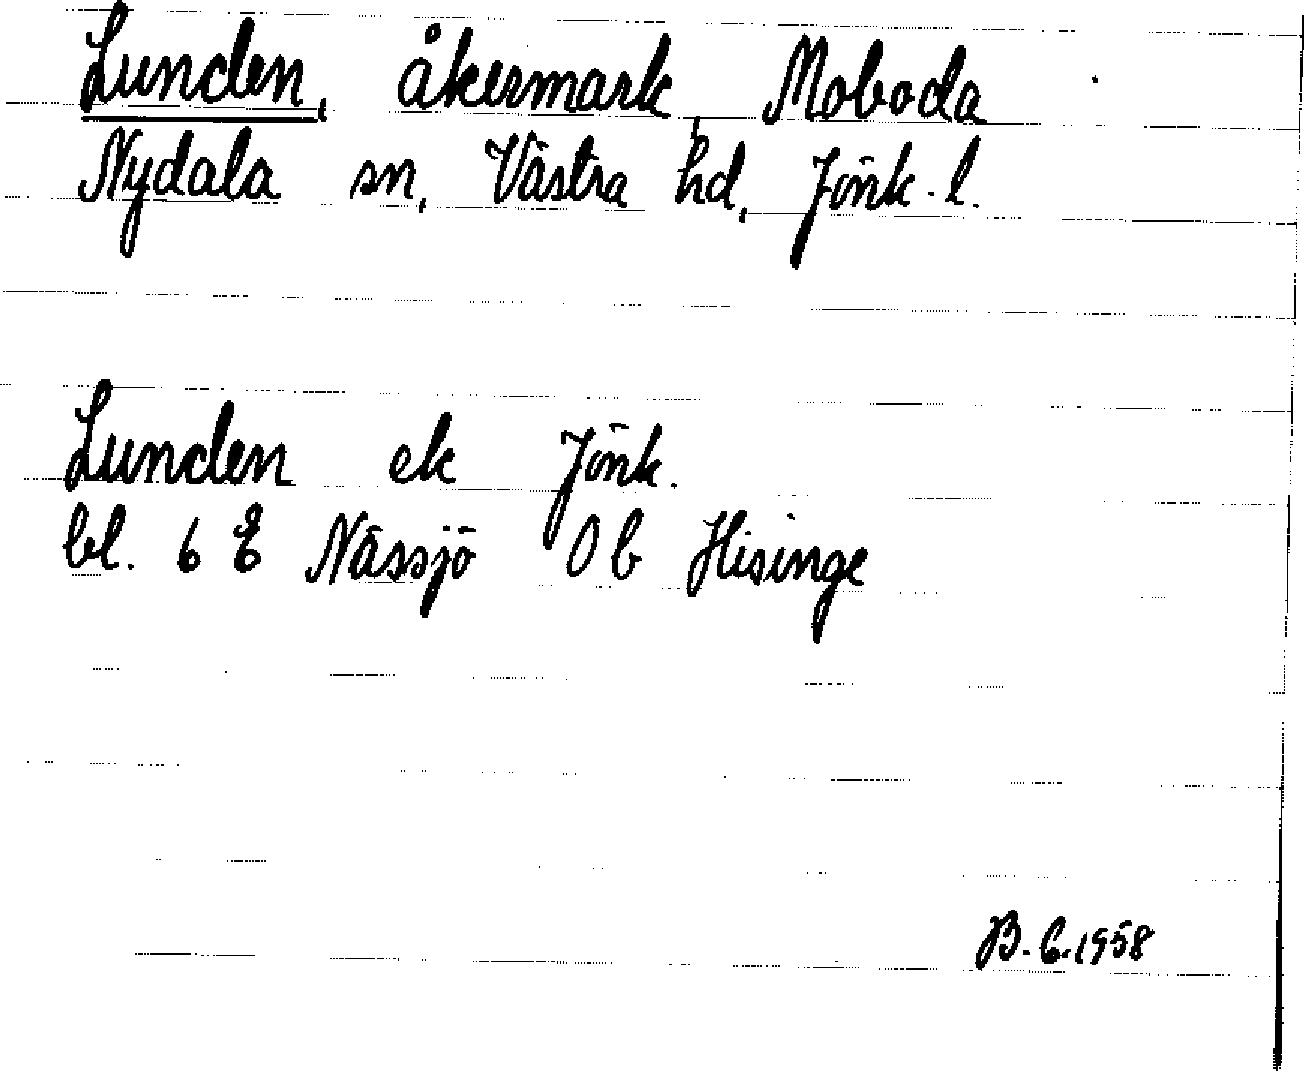 Lunden, åkermark, Moboda
Nydala sn, Västra hd, Jönk. l.
Lunden ek Jönk.
bl. 6 E Nässjö 0 b Hisinge
B. G. 1958